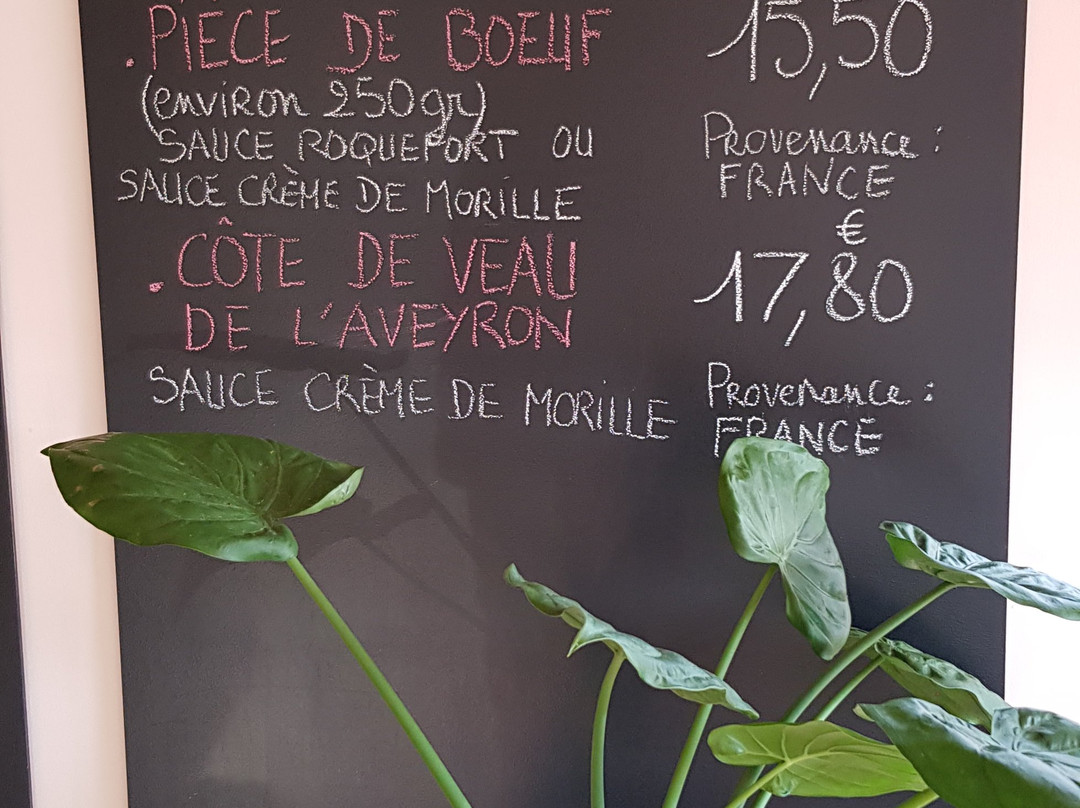 . PIÈCE DE BOEUF 15,50
(environ 250gr)
SAUCE ROQUEFORT OU
SAUCE CRÈME DE MORILLE
Provenance :
FRANCE
€
. CÔTE DE VEAU
DE L'AVEYRON
17,80
SAUCE CRÈME DE MORILLE
Provenance :
FRANCE